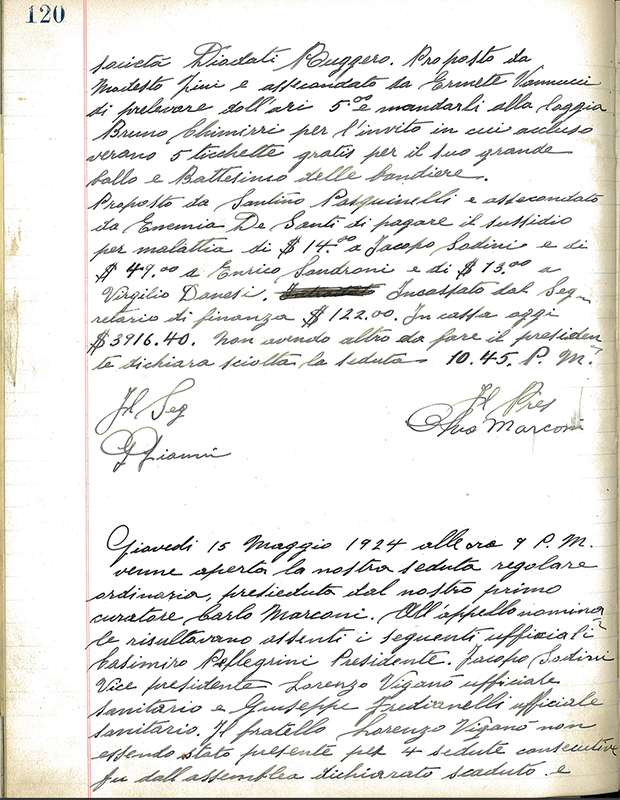 120
società Diodati Ruggero. Proposto da
Modesto Pini e assecondato da Ermete Vannucci
di prelavare dollari 5.00 e mandarli alla loggia
Bruno Chimirri per l'invito in cui accluso
verano 5 ticchette gratis per il suo grande
ballo e Battesimo delle bandiere.
Proposto da Santino Pasquinelli e assecondato
da Enemia De Santi di pagare il sussidio
per malattia di $14.00 a Jacopo Sodini e di
$49.00 a Enrico Sandroni e di $13.00 a
Virgilio Danesi. Incassato dal Seg-
retario di finanza $122.00. In cassa oggi
$3916.40. Non avendo altro da fare il presiden-
te dichiara sciolta la seduta 10.45. P. M.
Il Seg Il Pres
G Gianni Marconi
Giovedi 15 Maggio 1924 alle ore 9 P. M.
venne aperta la nostra seduta regolare
ordinaria, presieduta dal nostro primo
curatore Carlo Marconi. All'appello nomina-
le risultavano assenti i seguenti ufficiali
Casimiro Pellegrini Presidente. Jacopo Sodini
Vice presidente Lorenzo Viganò ufficiale
sanitario e Giuseppe Fredianelli ufficiale
sanitario. Il fratello Lorenzo Viganò non
essendo stato presente per 4 sedute consecutive
fu dall'assemblea dichiarato scaduto. e